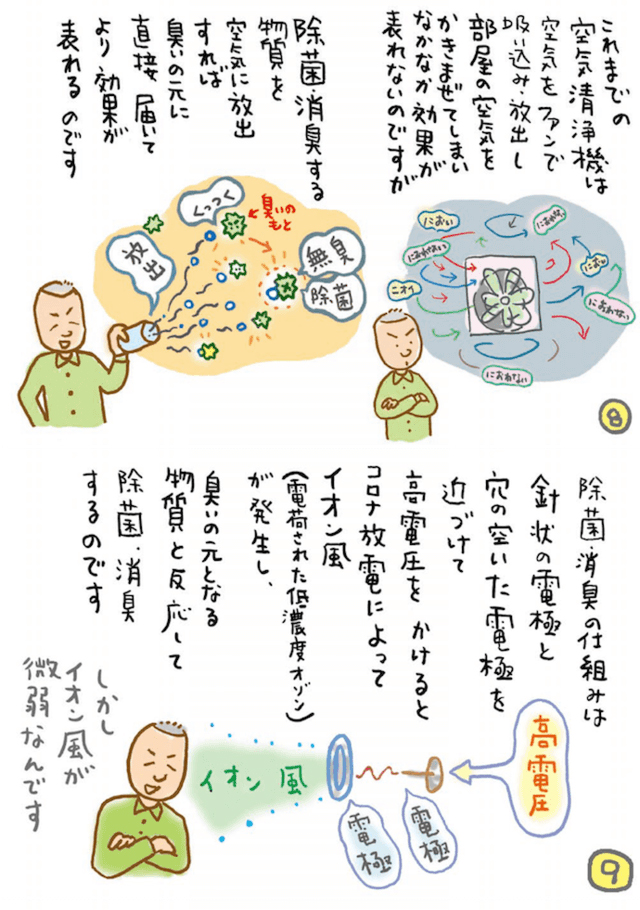 これまでの
空気清浄機は
空気をファンで
吸い込み・放出し
部屋の空気を
かきまぜてしまい
なかなか効果が
表れないのですが
におい
におわない
におわない
におい
ニオイ
におわない
におわない
除菌・消臭する
物質を
空気に放出
すれば
臭いの元に
直接 届いて
より 効果が
表れるのです
くっつく
臭いの
もと
放出
無臭
除菌
8
除菌・消臭の仕組みは
針状の電極と
穴の空いた電極を
近づけて
高電圧を かけると
コロナ放電によって
イオン風
(電荷された低濃度オゾン)
が発生し、
臭いの元となる
物質と反応して
除菌・消臭
するのです
高電圧
電極
電極
イオン風
しかし
イオン風が
微弱なんです
9